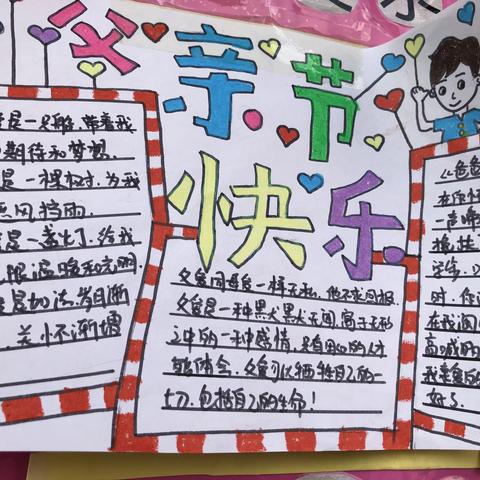 父亲节
快乐
是一只船、带着我
期待和梦想.
是一棵树、为我
风挡雨.
是一盏灯、给我
限温暖和光明
是加法、岁月渐
关怀渐增
父爱同母爱一样无私、他不求回报、
父爱是一种默默无闻、寓于无形
之中的一种感情、只有用心的人才
能体会、父爱可以牺牲自己的
一切、包括自己的生命!
《爸爸
在你怀
一声啼
时、你
在我
高
我是
好